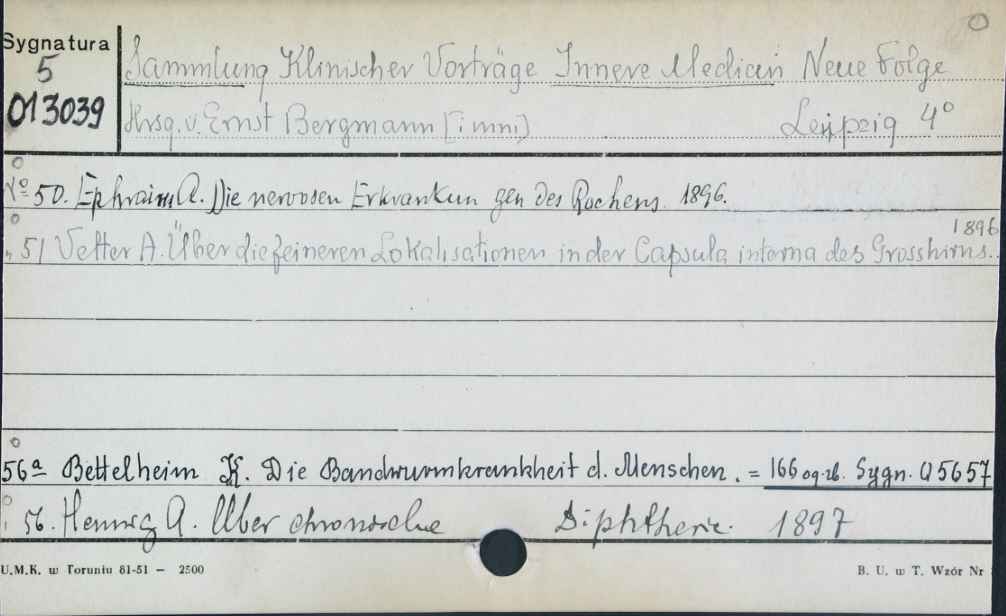 Sygnatura
5
013039
Sammlung Klinischer Vorträge Innere Medicin Neue Folge
Hrsg. v. Ernst Bergmann [i inni] Leipzig 4°
No 50. Ephraim A. Die nervosen Erkrankun gen des Rachens. 1896.
" 51 Vetter A. Über die feineren Lokalisationen in der Capsula interna des Grosshirns. 1896
56a Bettelheim K. Die Bandwurmkrankheit d. Menschen. = 166 og. zb. Sygn. Q5657
56. Hennig A. Über chronische Diphtherie. 1897
U.M.K. w Toruniu 81-51 — 2500
B. U. w T. Wzór Nr